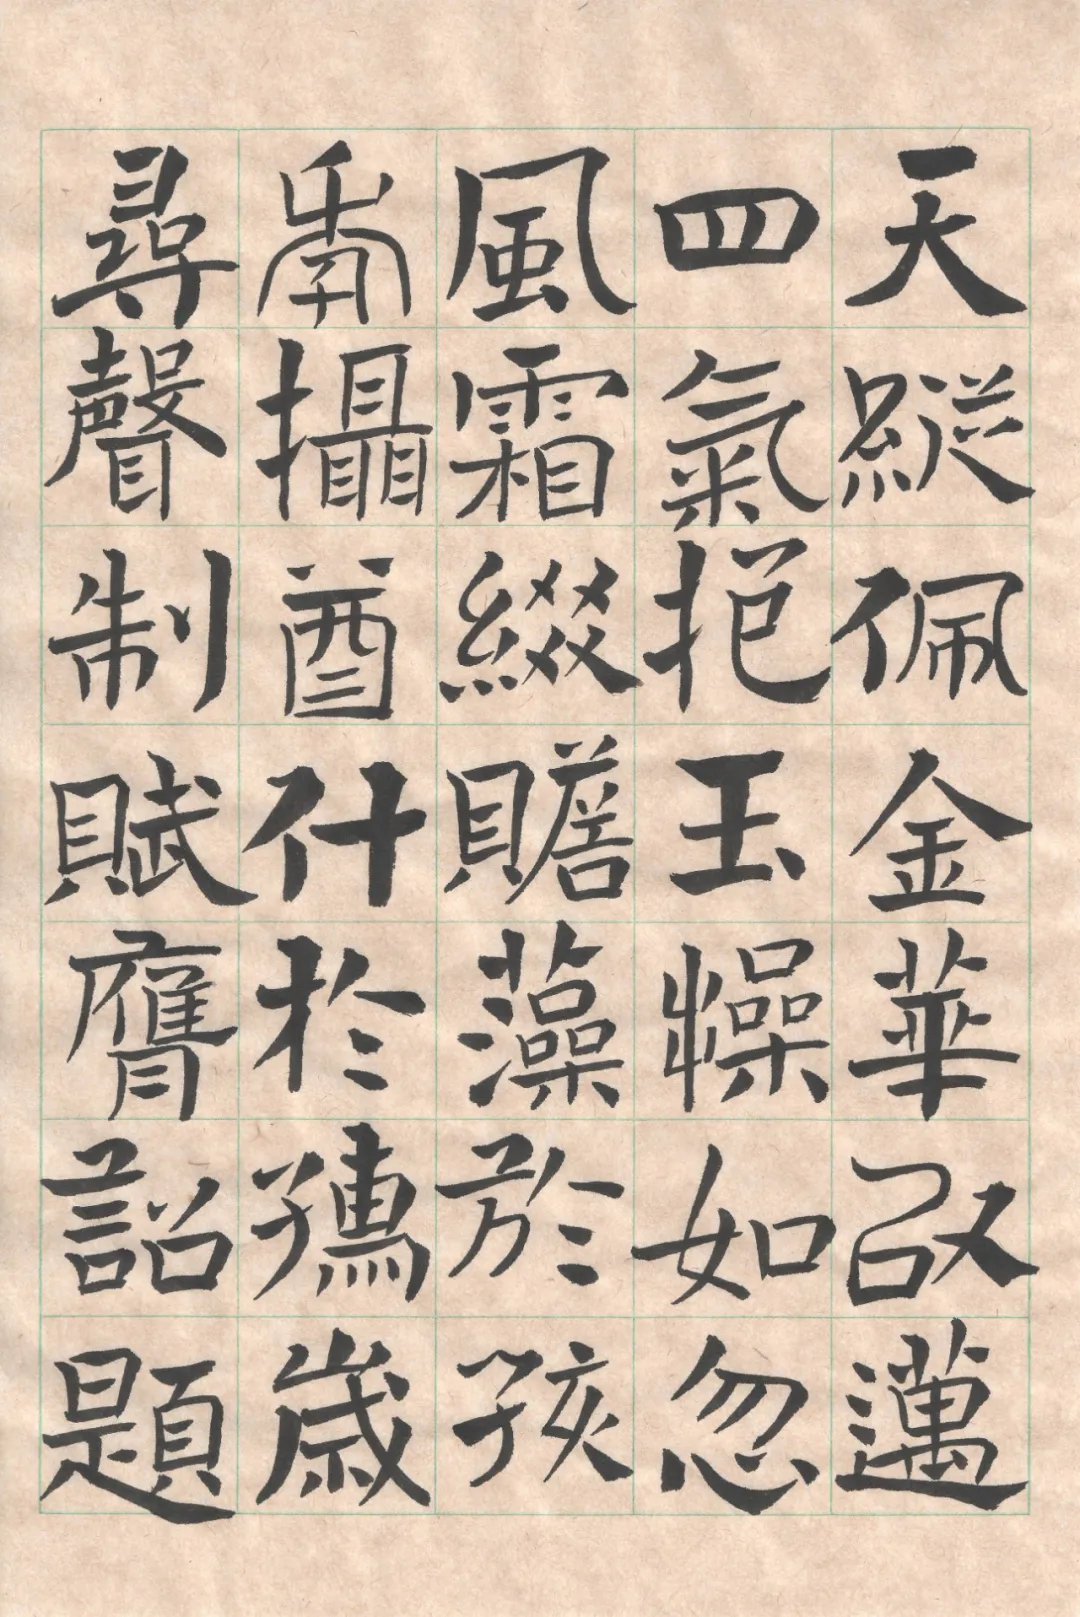 天縱佩金華以邁
四氣挹玉燥如忽
風霜綴贍藻於孩
年攝酋什於歲
尋聲制賦膺詔題